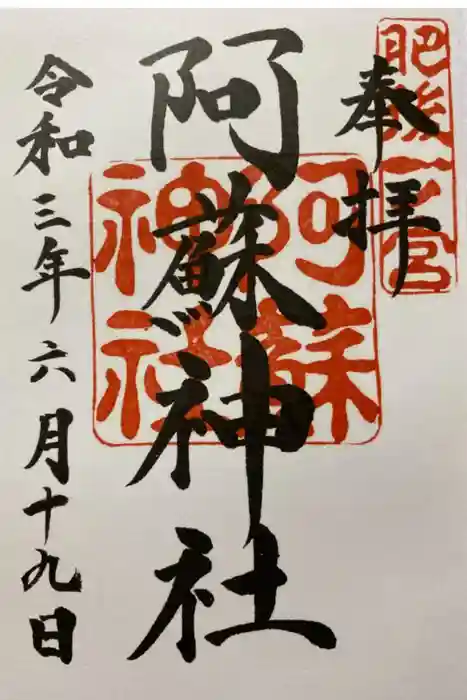 奉拝
肥後一之宮
阿蘇神社
阿蘇
神社
令和三年六月十九日